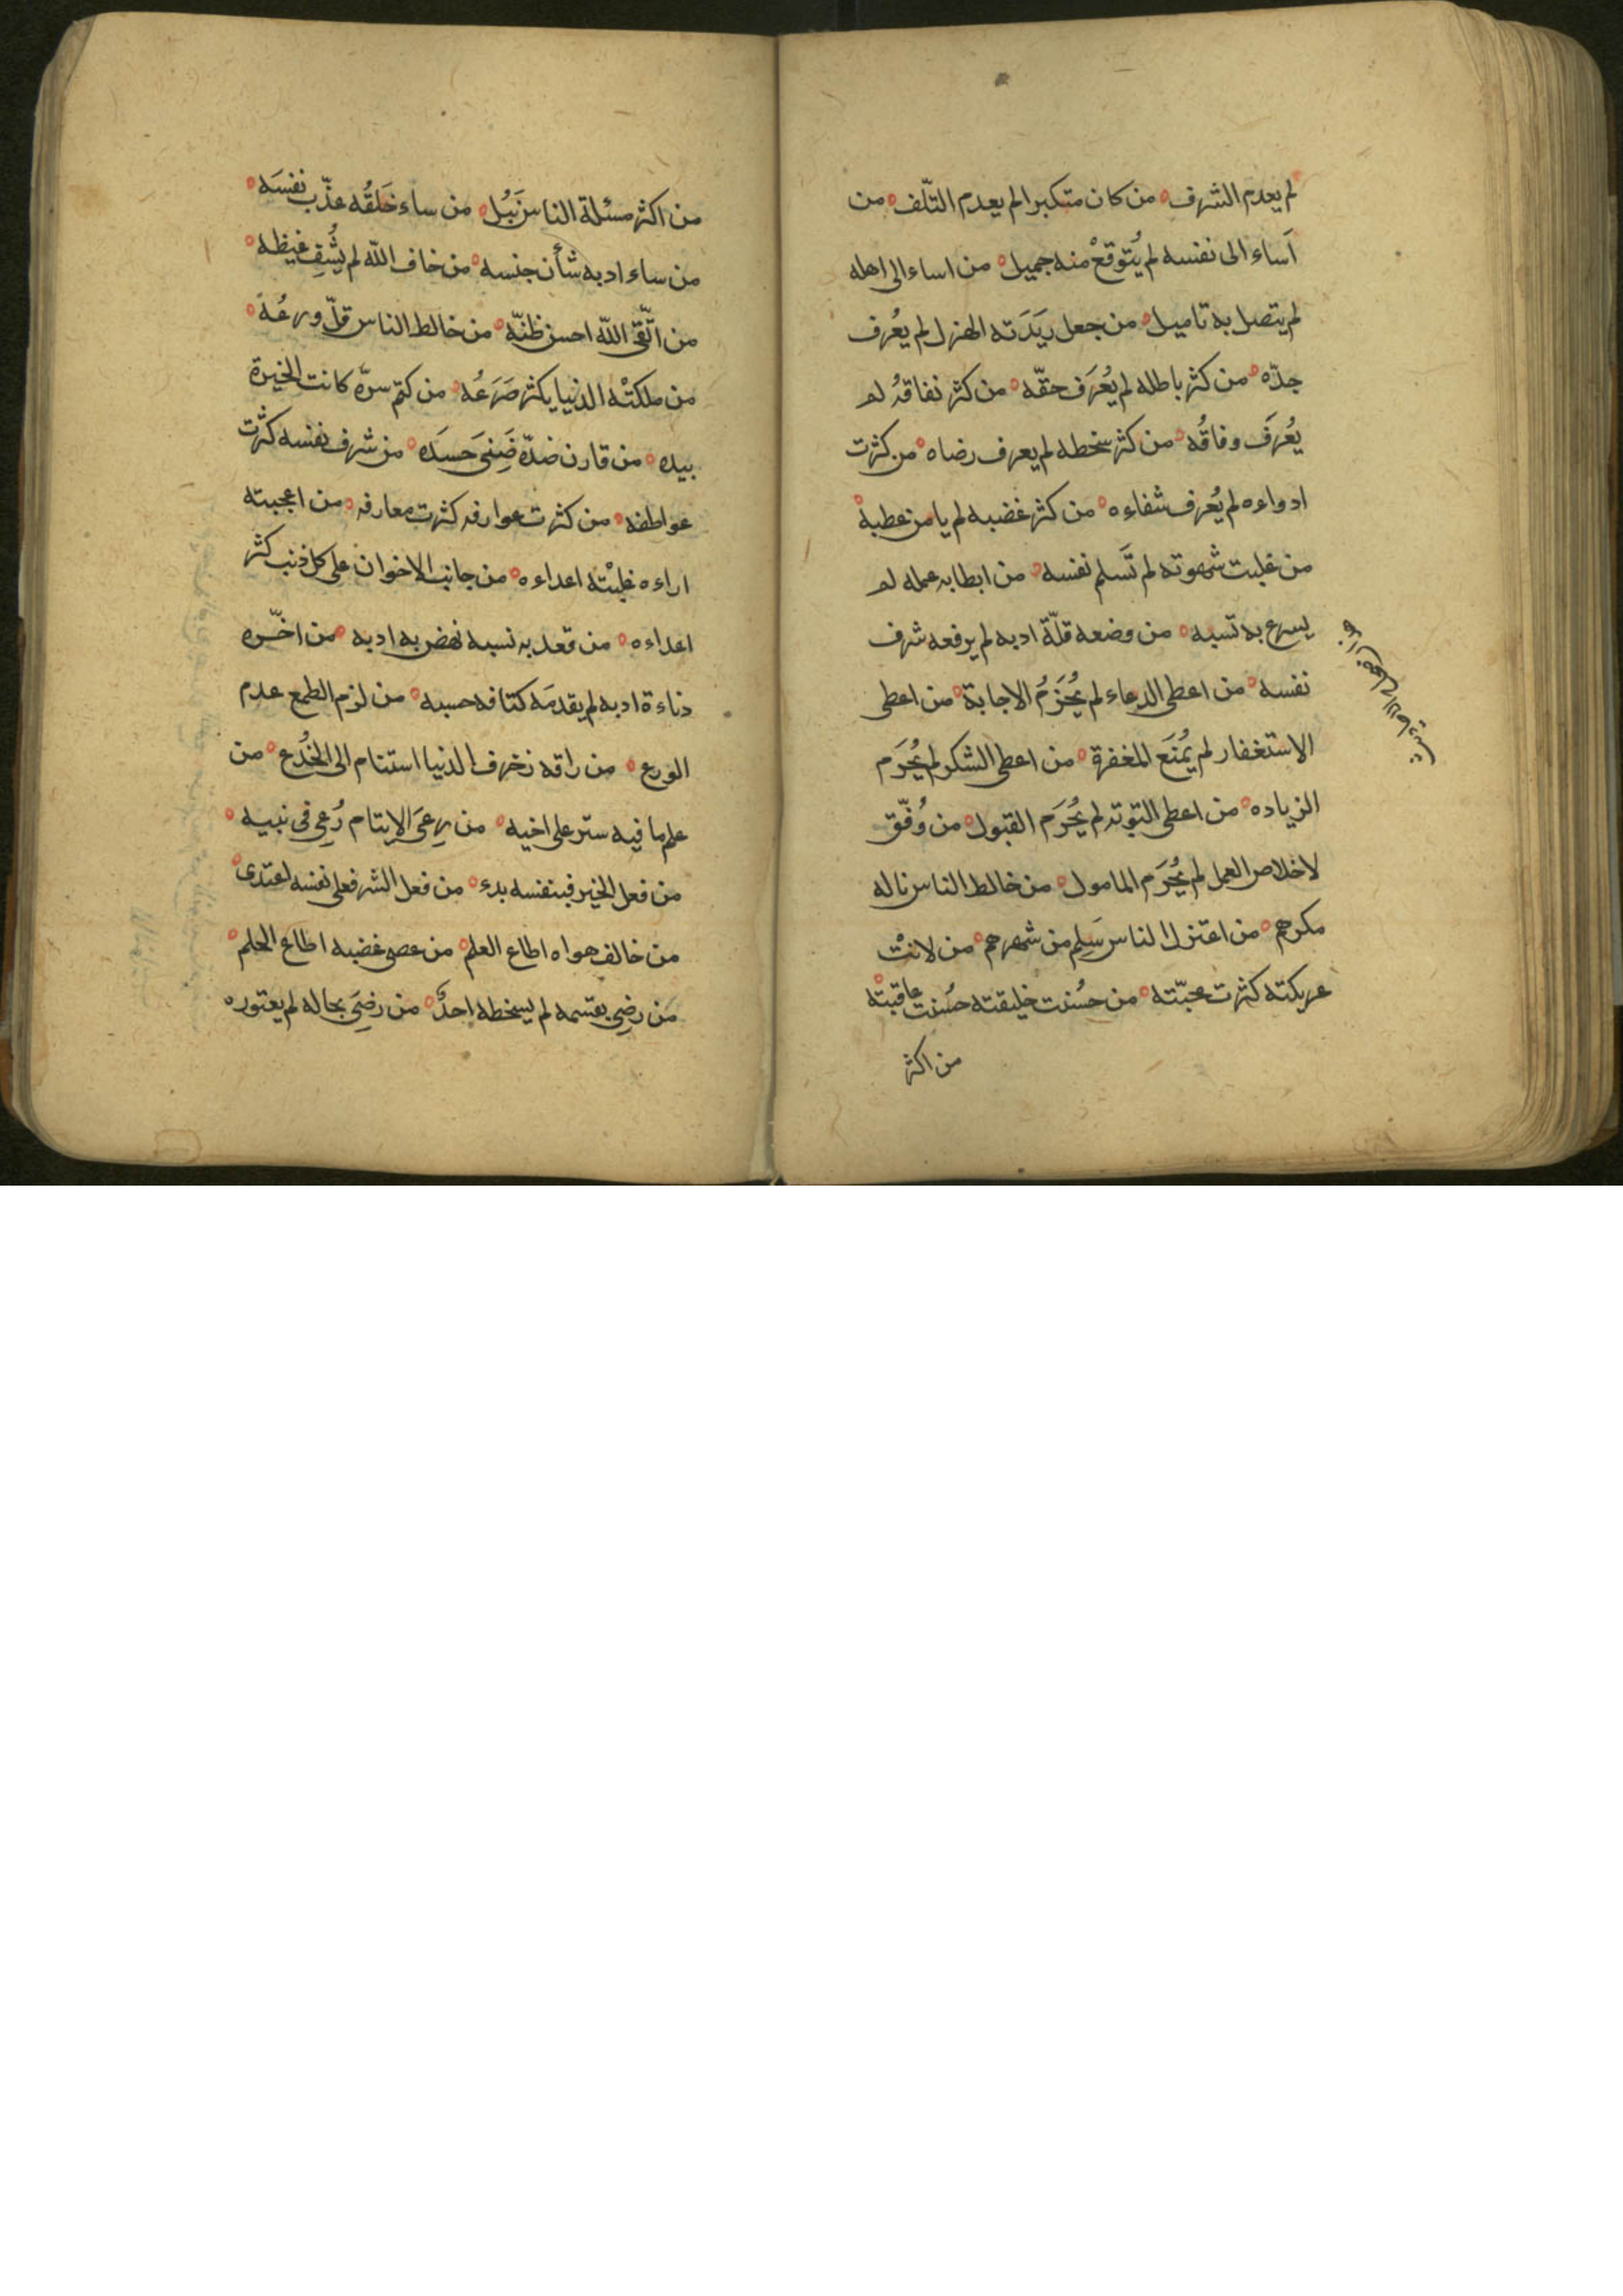 لم يعدم الشرف من كان متكبرا لم يعدم التّلف من
اَساء الى نفسه لم يُتوقعْ منه جميل من اساء الى اهله
لم يتصل به تاميل من جعل دَيدَنه الهزل لم يُعرف
جدّه من كثر باطله لم يُعرَف حقّه من كثر نفاقهُ لم
يُعْرَف وفاقُه من كثر سخطه لم يعرف رضاه من كثرت
ادواءه لم يُعرف شفاءه من كثر غضبه لم يامن عطبهْ
من غلبت شهوته لم تَسلم نفسه من ابطا به عمله لم
يسرع به نسبه من وضعه قلّة ادبه لم يرفعه شرف
نفسه من اعطى الدعاء لم يُحْرَمُ الاجابة من اعطى
الاستغفار لم يُمنَع المغفرة من اعطى الشكر لم يُحرَم
الزياده من اعطى التوبة لم يُحْرَم القبول من وُفّق
لاخلاص العمل لم يُحْرَم المامول من خالط الناس ناله
مكرهم من اعتزل الناس سَلِم من شرهم من لانتْ
عريكته كثرت محبّته من حسُنت خليقته حسُنت عاقبتْه
من اكثر
من اكثر مسئلة الناس نَبُل من ساء خَلَقُه عذّب نفسَه
من ساء ادبه شأن جنسه من خاف اللّه لم يُشفِ غيظه
من اتّقى اللّه احسن ظنّه من خالط الناس قلّ ورعُهُ
من ملكتْه الدنيا يكثر صَرَعُه من كتم سرّه كانت الخيرة
بيده من قارن ضدّه ضَنِىَ حَسدَه من شرف نفسه كثرت
عواطفه من كثرت عوارفه كثرت معارفه من اعجبته
اراءه غلبتْه اعداءه من جانب الاخوان على كل ذنب كثر
اعداءه من قعد به نسبه نهض به ادبه من اخّره
دناءة ادبه لم يقدمَه كثافه حسبه من لزم الطمع عدم
الورع من راقه زخرف الدنيا استنام الى الخُدع من
علم ما فيه ستر على اخيه من رعَى الايتام رُعِى فى نبيه
من فعل الخير فبنفسه بدء من فعل الشر فعلى نفسه اعتدى
من خالف هواه اطاع العلم من عصى غضبه اطاع الحلم
مَن رضِى بقسمه لم يسخطه احدٌ من رضِىَ بحاله لم يعتوره